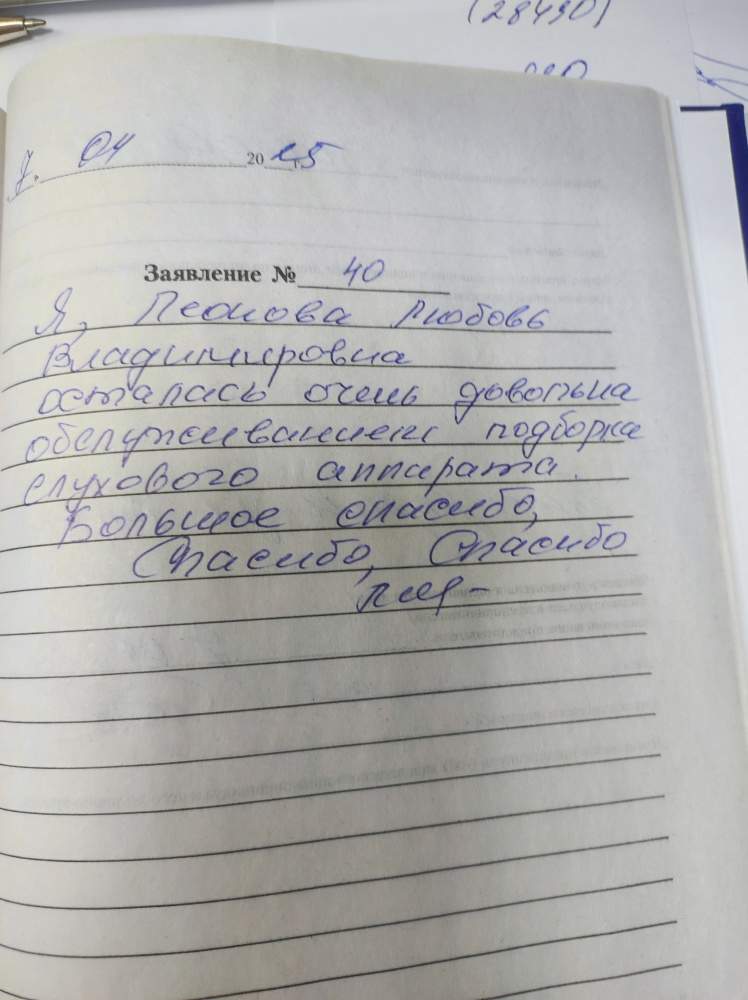 (28490)
7. 04 2025
Заявление № 40
Я, Леонова Любовь
Владимировна
осталась очень довольна
обслуживанием подборка
слухового аппарата.
Большое спасибо,
Спасибо, Спасибо